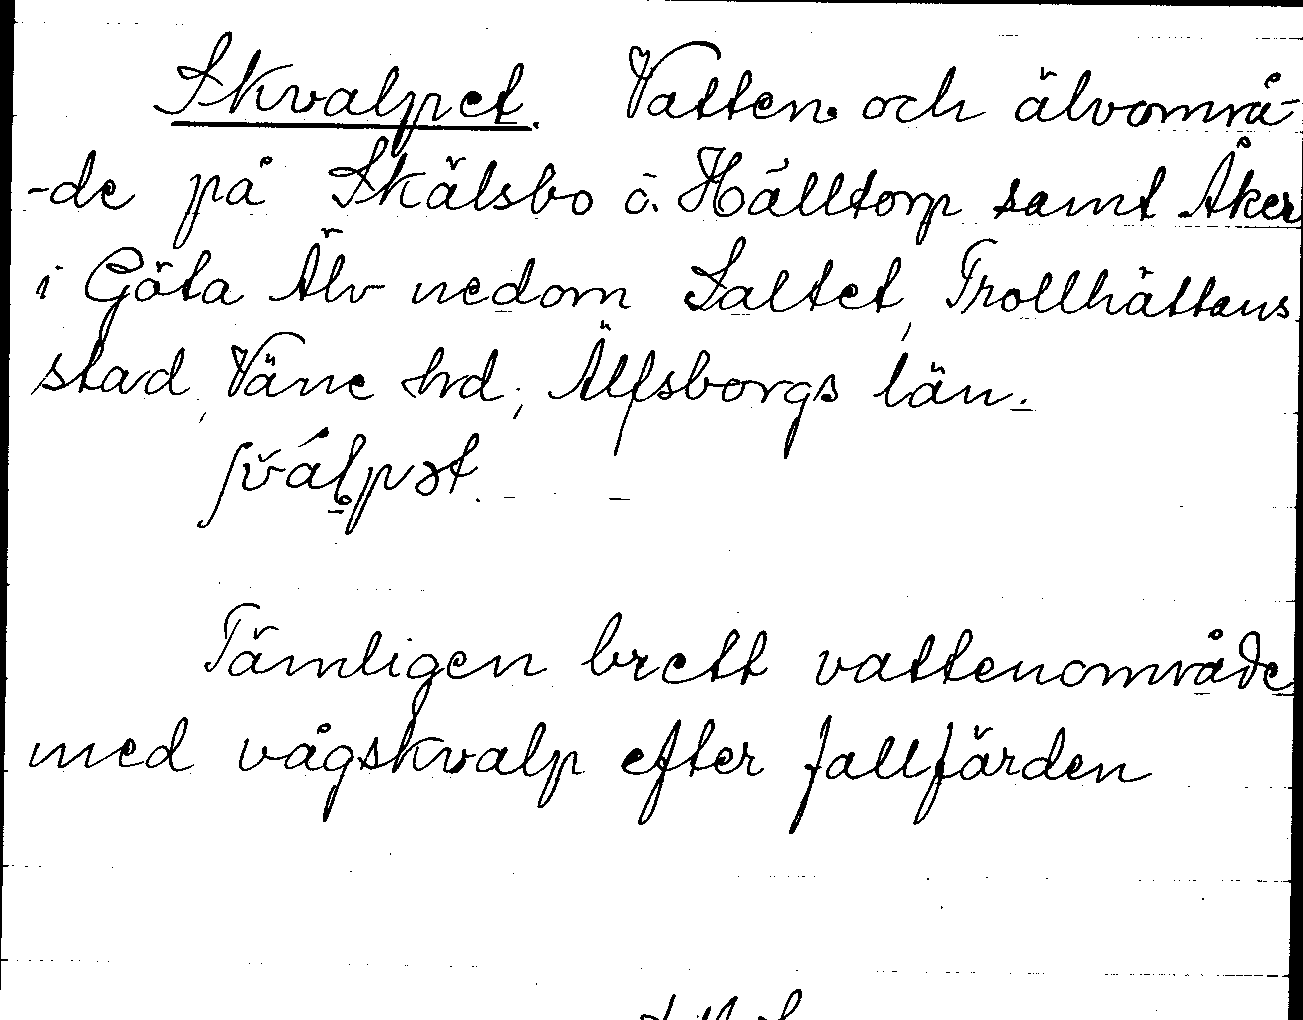 Skvalpet. Vatten och älvområ-
-de på Skälsbo o. Hälltorp samt Åker
i Göta Älv nedom Saltet, Trollhättans
stad, Väne hd, Älfsborgs län.
ʃválpət.
Tämligen brett vattenområde
med vågskvalp efter fallfärden